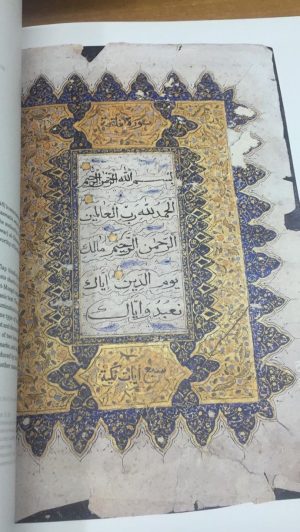 سورة فاتحة
بسم الله الرحمن الرحيم
الحمد لله رب العالمين
الرحمن الرحيم مالك
يوم الدين اياك
نعبد واياك
سبع
ايات مكية